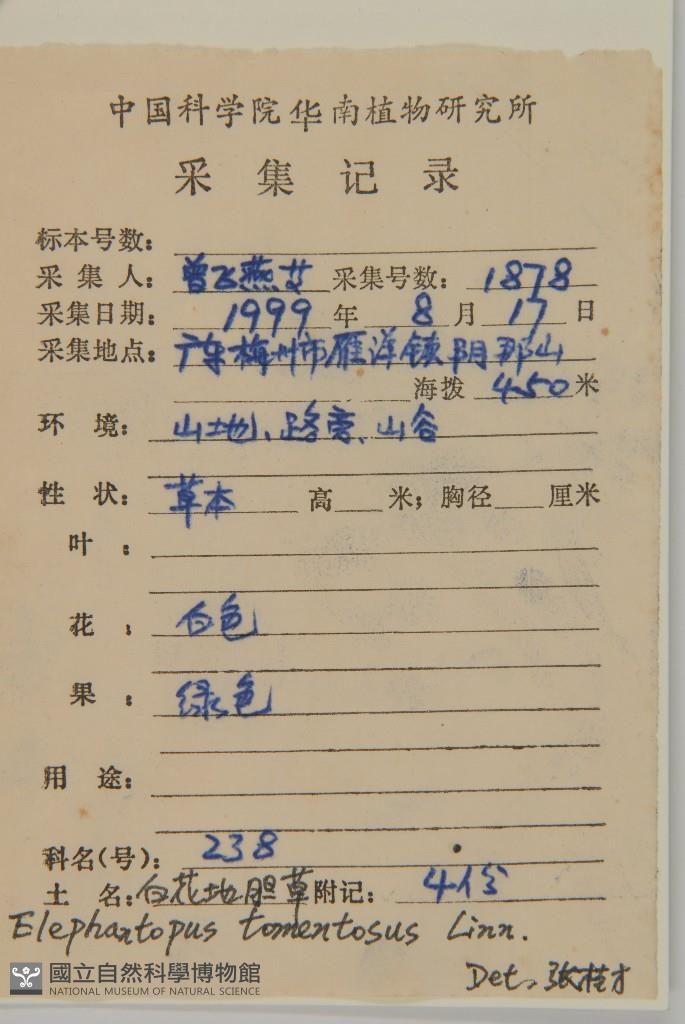 中国科学院华南植物研究所
采集记录
标本号数：
采集人：曾飞燕艾 采集号数：1878
采集日期：1999年8月17日
采集地点：广东梅州市雁洋镇阴那山
海拨 450米
环境：山地、路旁、山谷
性状：草本 高 米；胸径 厘米
叶：
花：白色
果：绿色
用途：
科名(号)：238
土名：白花地胆草 附记：4份
Elephantopus tomentosus Linn.
Det. 张桂才
國立自然科學博物館
NATIONAL MUSEUM OF NATURAL SCIENCE